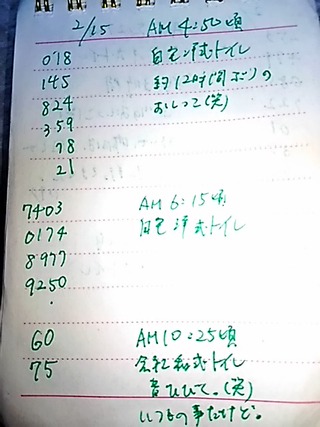 2/15 AM 4:50頃
078 自宅洋式トイレ
145 約12時間ぶりの
824 おしっこ(笑)
359
78
21
7403 AM 6:15頃
0174 自宅洋式トイレ
8977
9250
.
60 AM10:25頃
75 会社和式トイレ
音ひびいて。(笑)
いつもの事だけど。